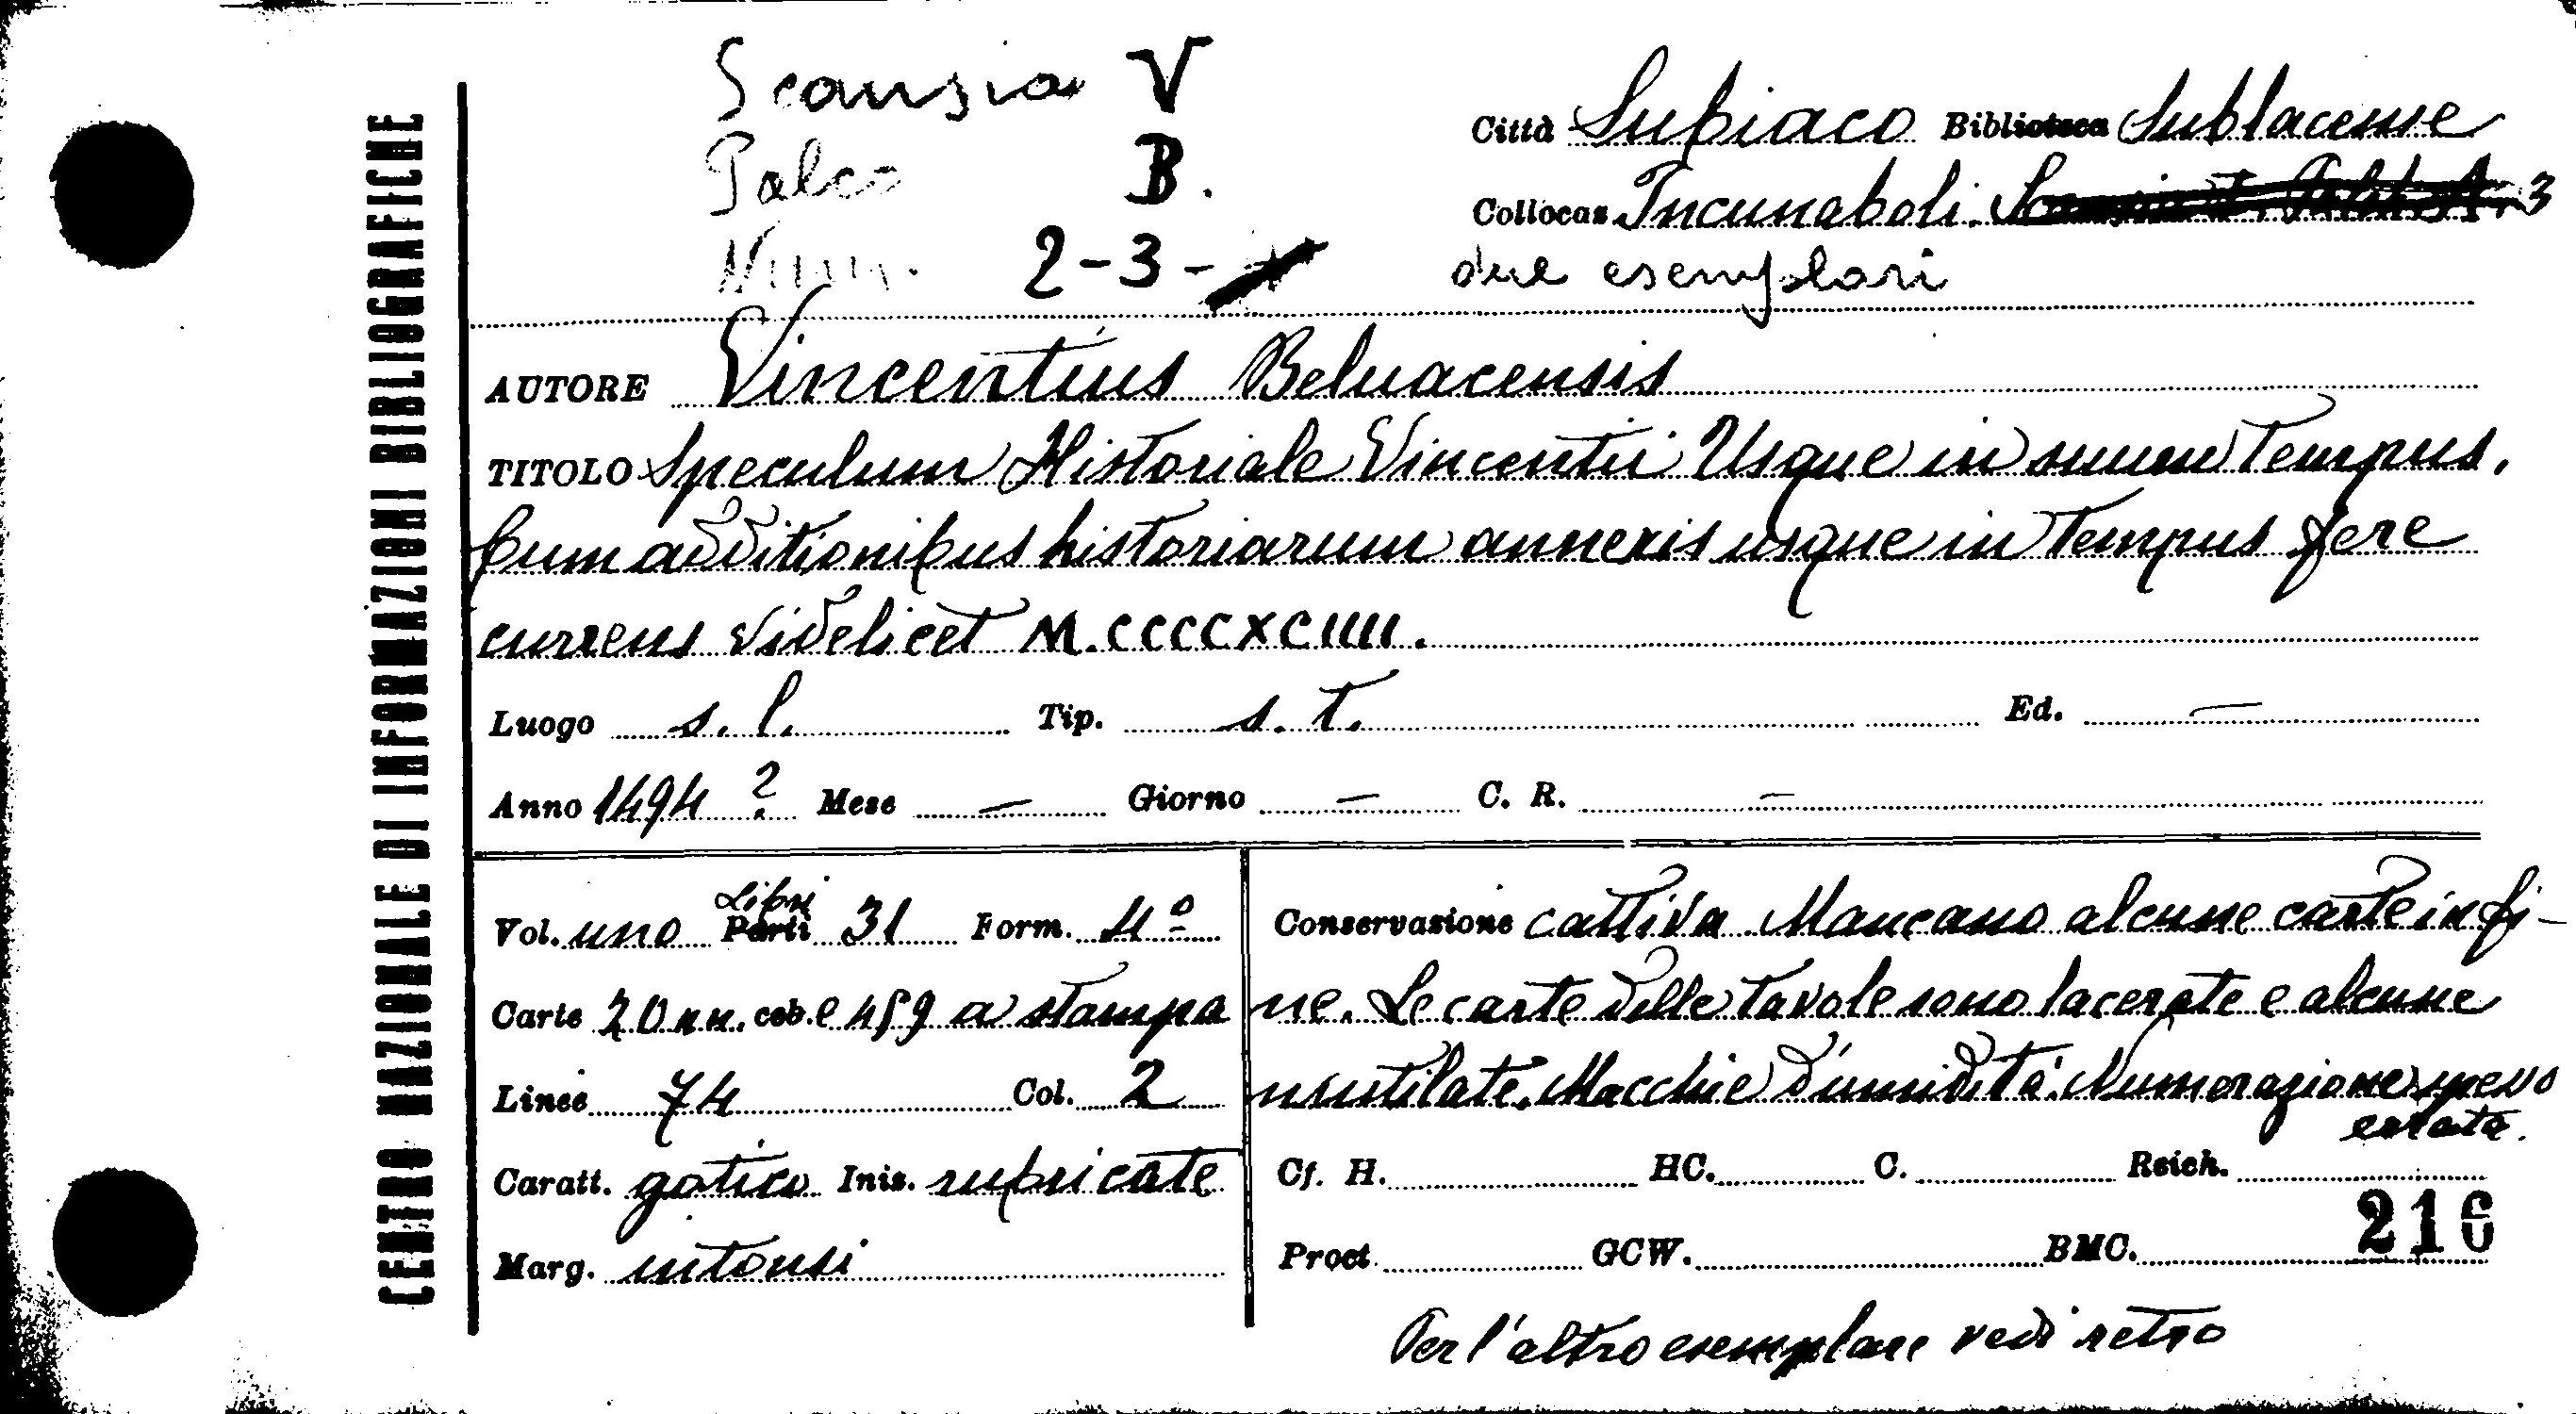 CENTRO NAZIONALE DI INFORMAZIONI BIBLIOGRAFICHE
Scansia V
Palco B.
Num. 2-3-
Città Subiaco Biblioteca Sublacense
Collocaz. Incunaboli. 3
due esemplari
AUTORE Vincentius Beluacensis
TITOLO Speculum Historiale Vincentii Usque in suum tempus.
Cum additionibus historiarum annexis usque in tempus fere
currens videlicet M.CCCCXCIIII.
Luogo s. l. Tip. s. t. Ed. —
Anno 1494 ? Mese — Giorno — C. R. —
Vol. uno Parti Libri 31 Form. 4º
Carte 20 nn. cob. e 459 a stampa
Linee 74 Col. 2
Caratt. gotico Iniz. rubricate
Marg. intonsi
Conservazione cattiva Mancano alcune carte in fi-
ne. Le carte delle tavole sono lacerate e alcune
mutilate. Macchie d'umidità. Numerazione spesso
errata.
Cf. H. HC. C. Reich.
Proct. GCW. BMC. 216
Per l'altro esemplare vedi retro